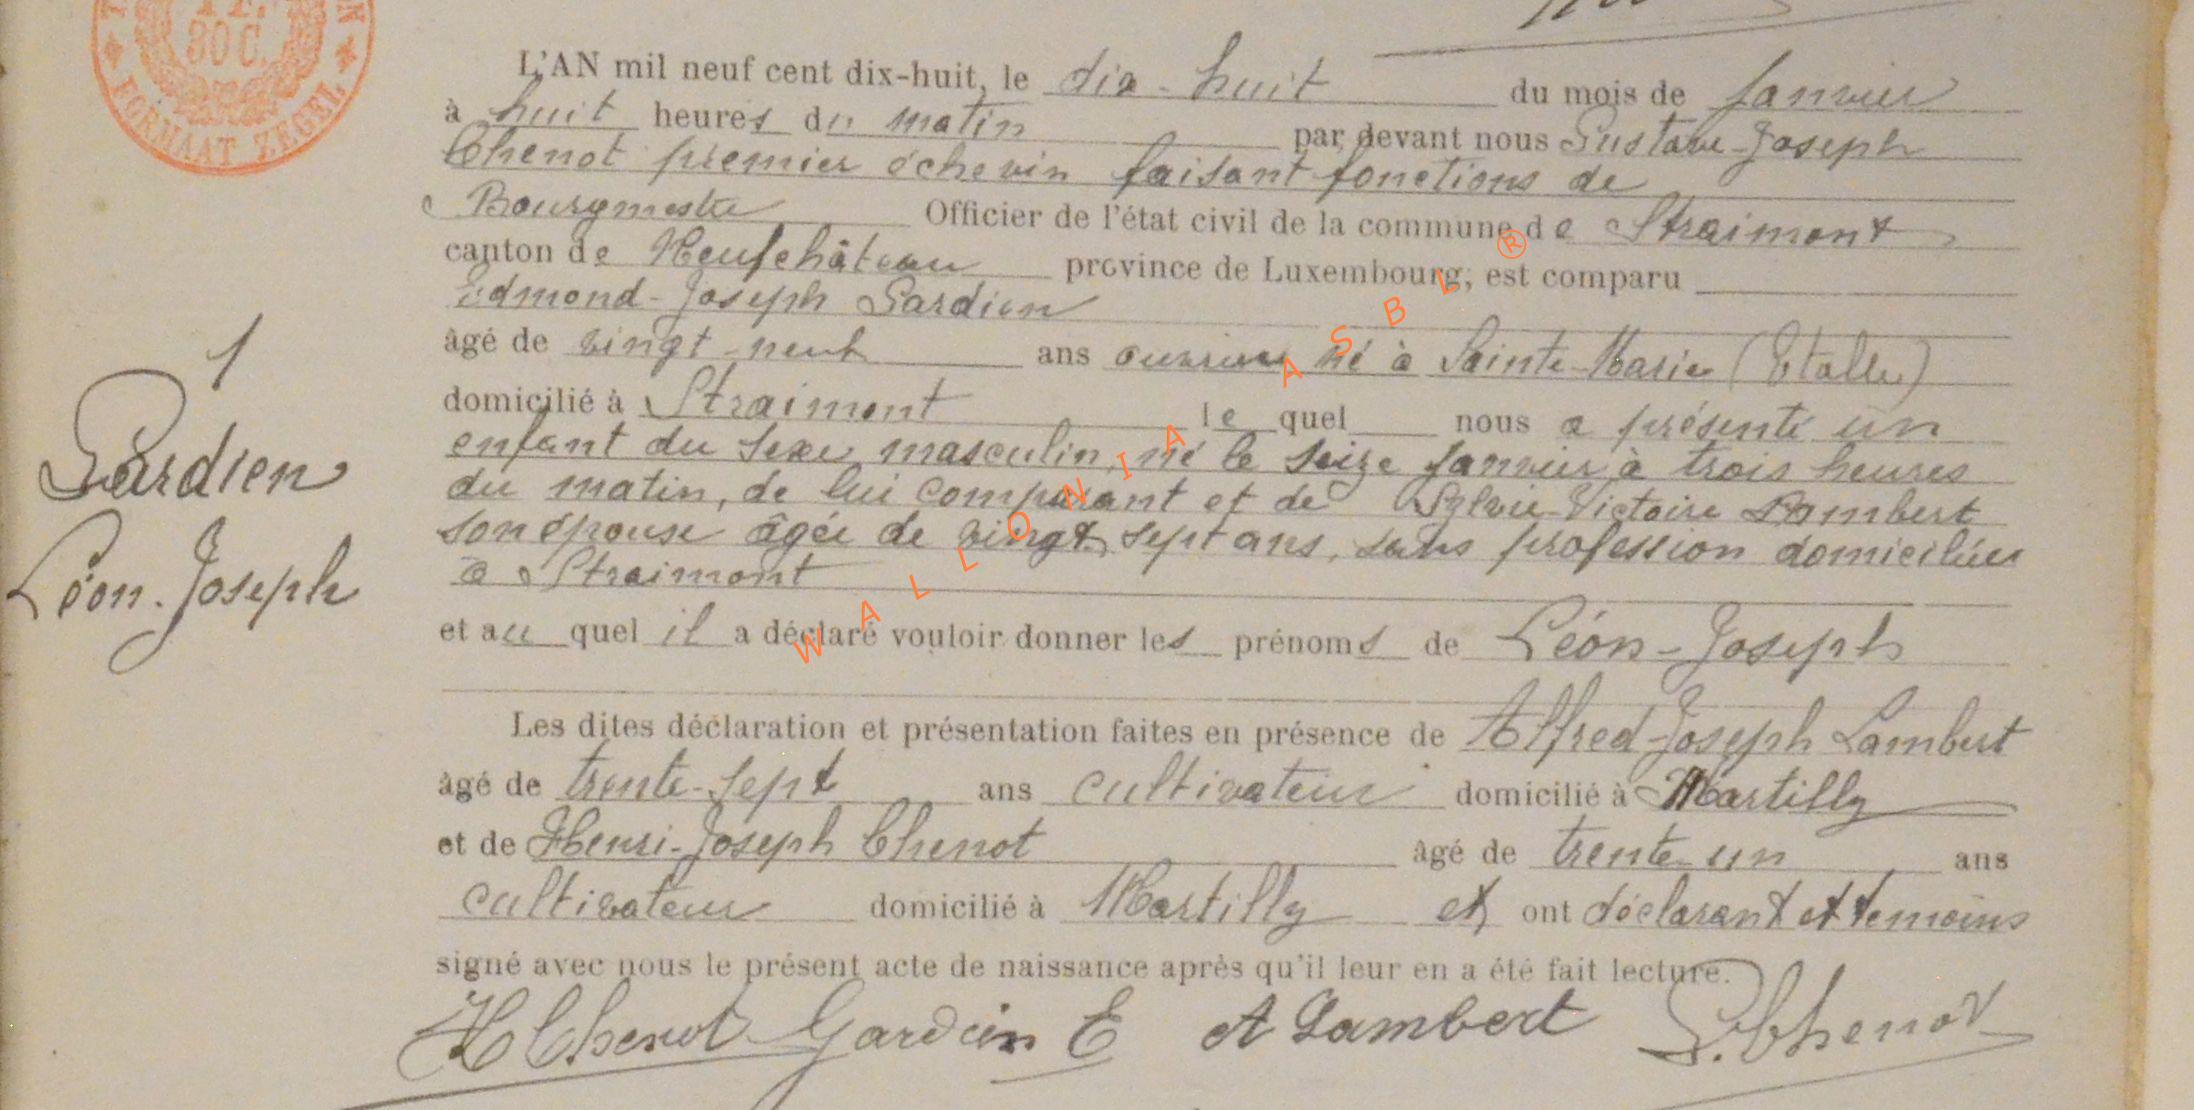 30 C.
FORMAAT ZEGEL
L'AN mil neuf cent dix-huit, le dix-huit du mois de Janvier
à huit heures du matin par devant nous Gustave-Joseph
Chenot premier échevin faisant fonctions de
Bourgmestre Officier de l'état civil de la commune de Straimont
canton de Neufchâteau province de Luxembourg; est comparu
Edmond-Joseph Gardien
âgé de vingt-neuf ans ouvrier né à Sainte-Marie (Etalle)
domicilié à Straimont le quel nous a présenté un
enfant du sexe masculin, né le seize Janvier à trois heures
du matin, de lui comparant et de Sylvie-Victoire Lambert
son épouse âgée de vingt sept ans, sans profession domiciliée
à Straimont
et au quel il a déclaré vouloir donner les prénoms de Léon-Joseph
1
Gardien
Léon-Joseph
Les dites déclaration et présentation faites en présence de Alfred-Joseph Lambert
âgé de trente-sept ans cultivateur domicilié à Martilly
et de Henri-Joseph Chenot âgé de trente-un ans
cultivateur domicilié à Martilly et ont déclarant et témoins
signé avec nous le présent acte de naissance après qu'il leur en a été fait lecture.
H Chenot Gardien E A Lambert G. Chenot
WALLONIA ASBL ®